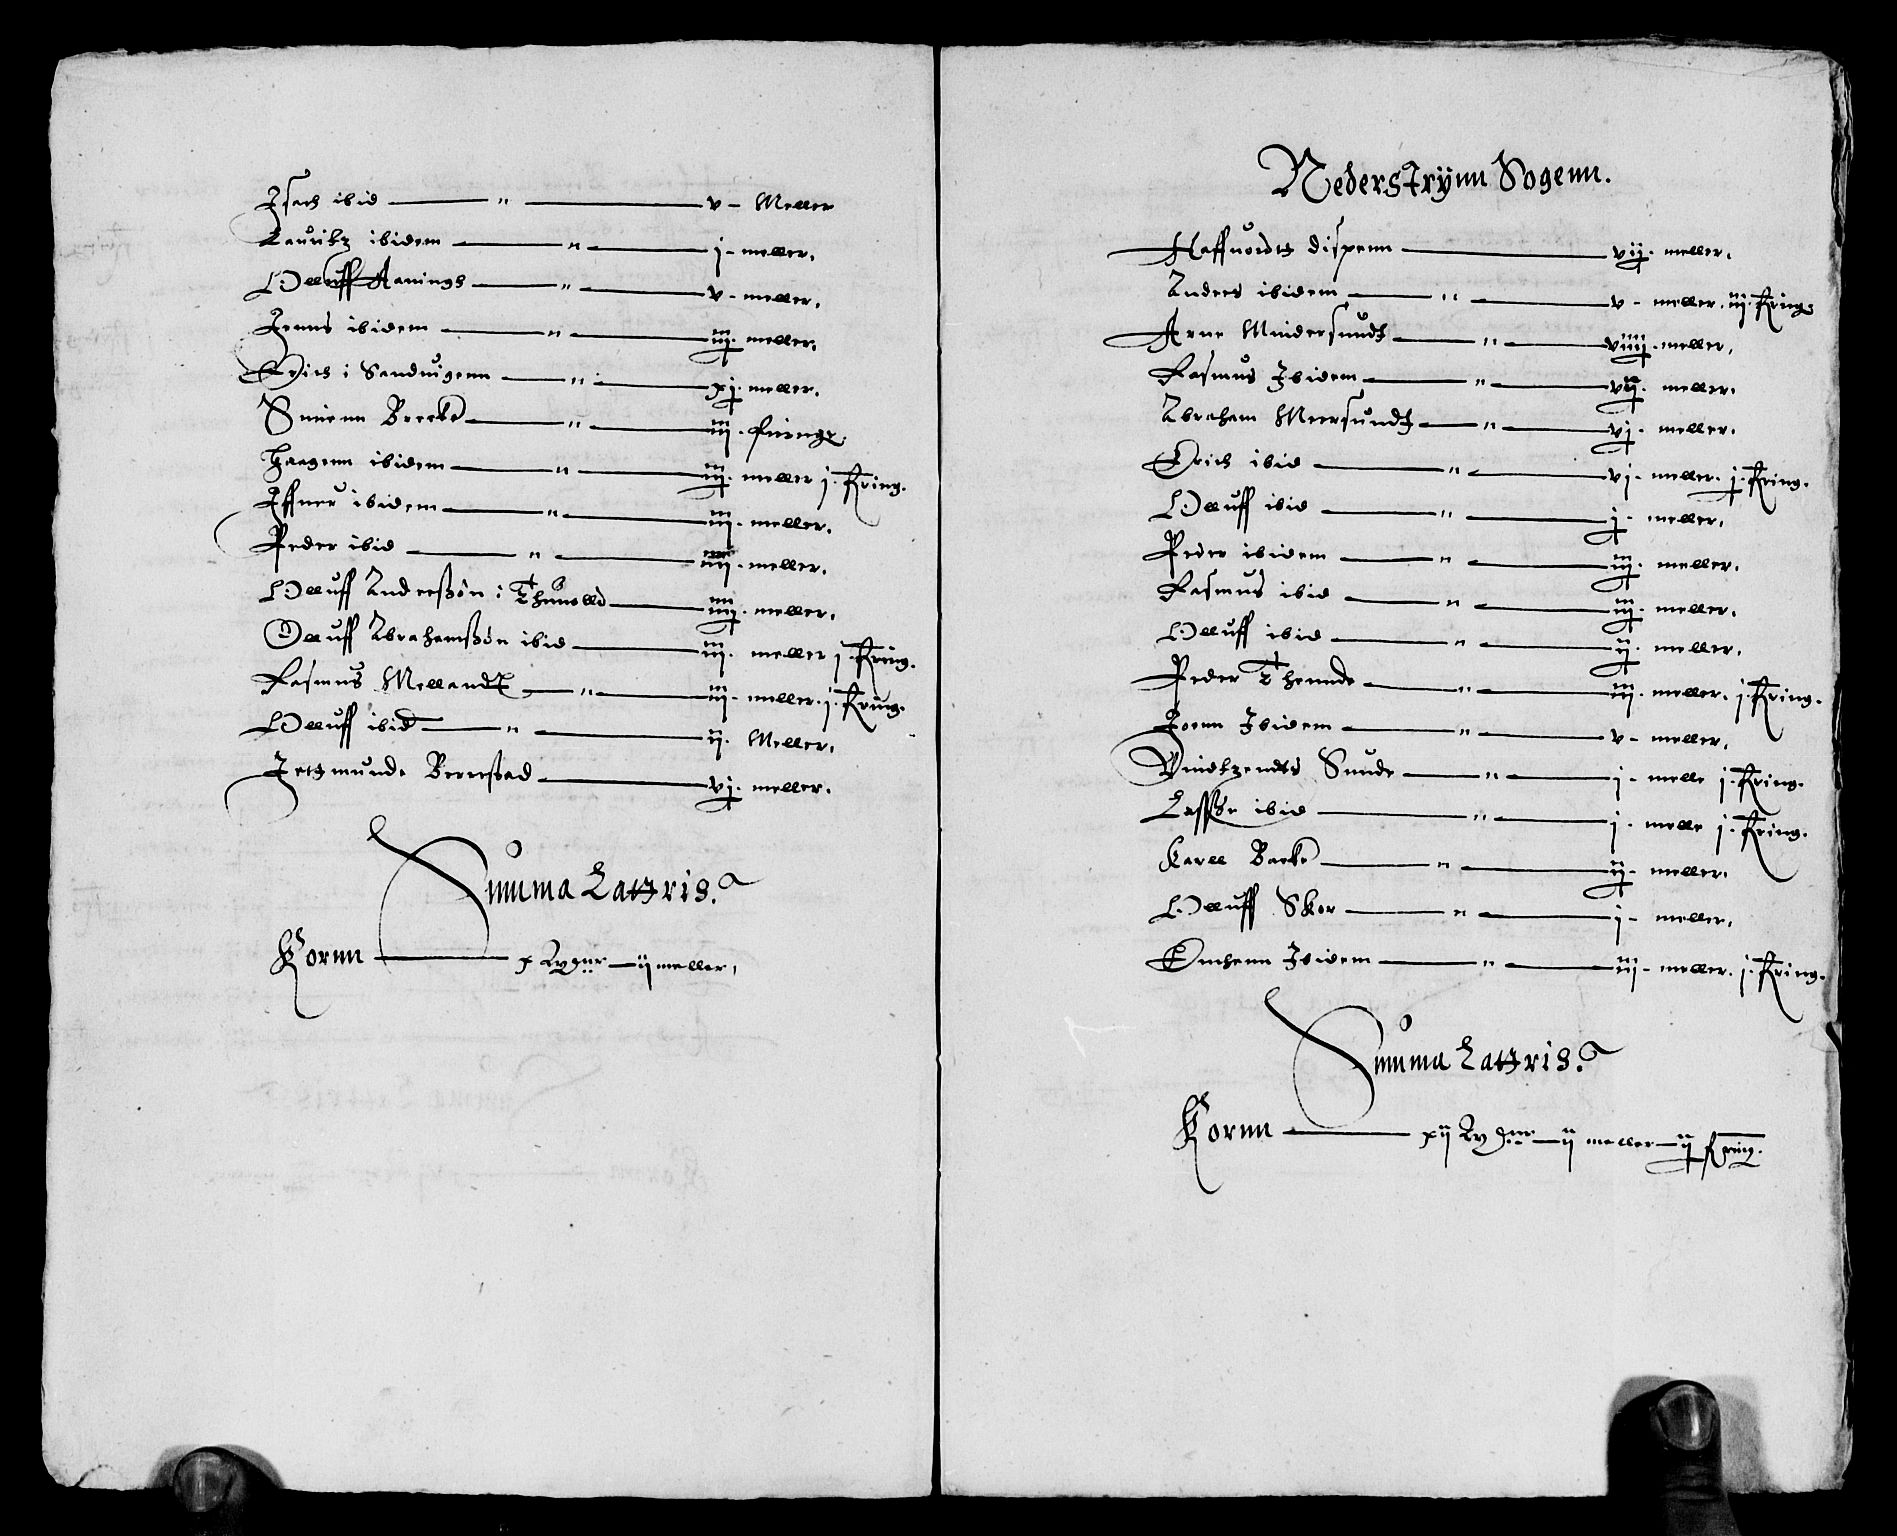 Isach ibid — " — v - Meller
Lauritz ibidem — " — j - meller.
Olluff Aanings — " — v - meller.
Jenns ibidem — " — iij. meller.
Erich i Sanduigenn — " — xj. meller.
Suenn Brecke — " — iij.
Haagenn ibidem — " — iij. meller j. Kring.
Iffuer ibidem — " — iij. meller.
Peder ibid — " — iiij. meller.
Olluff Anderßøn i — iiij. meller.
Oluff Abrahamßøn ibid — iij. meller j. Kring.
Rasmus Mellandt — " — iij. meller. j. Kring.
Olluff ibid — " — ij. Meller.
Berrestad — vj. meller.
Summa Lateris.
Kornn — x — ij meller,
Nederstrÿnn Sogenn.
Haffuordt dispenn — vij. meller.
Anders ibidem — " — v - meller. iij. Kring.
Arne Mindersundt — " — viiij. meller,
Rasmus Ibidem — " — vij. meller.
Abraham Meersundt — " — vj. meller.
Erich ibid — " — vj - meller. j. Kring.
Olluff ibid — " — j - meller.
Peder ibidem — " — iij. meller.
Rasmus ibid — " — iij. meller.
Olluff ibid — " — ij. meller.
Peder Thonnde — " — iij. meller. j. Kring.
Joenn Ibidem — " — v - meller.
Vindtzendts Sunde — " — j - melle j. Kring.
Laffße ibid — " — j - melle j. Kring.
Karll Backe — " — ij - meller.
Olluff Skor — " — j - meller.
Ibidem — " — iij - meller. j. Kring.
Summa Lateris.
Kornn — xij — ij meller — ij Kring.